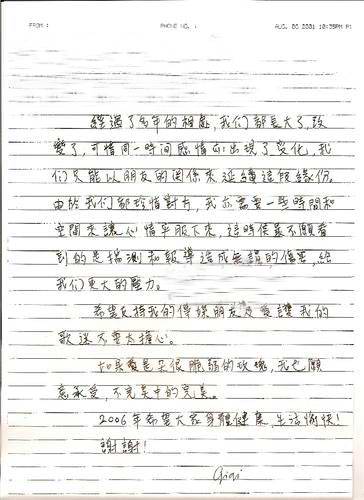 FROM :
PHONE NO. :
AUG. 06 2001 10:35PM P1
經過了多年的相處,我们都長大了,改
變了,可惜同一時间感情也出現了变化,我
们只能以朋友的関係來延續這段緣份。
由於我们都珍惜對方,我亦需要一些時間和
空間來讓心情平服下來,這時候最不願看
到的是揣測和報導造成無謂的傷害,給
我们更大的壓力。
希望支持我的傳媒朋友及愛護我的
歌迷不要太擔心。
如果愛是朵很脆弱的玫瑰,我也願
意承受,不完美中的完美。
2006年希望大家身體健康,生活愉快!
謝謝!
Gigi